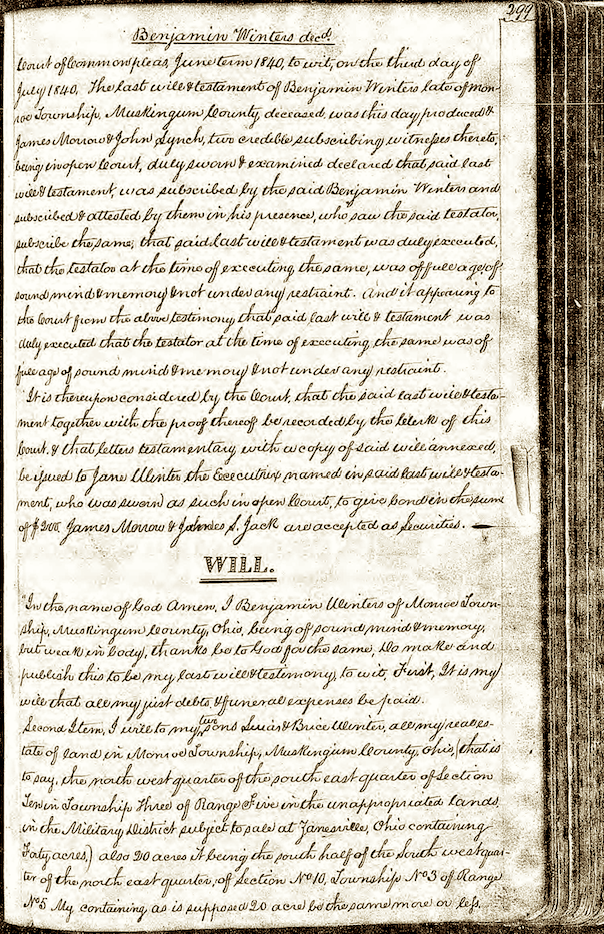 299
Benjamin Winters decd.
Court of Common pleas, June term 1840, to wit, on the third day of
July 1840. The last will & testament of Benjamin Winters late of Mon-
roe Township, Muskingum County, deceased, was this day produced &
James Morrow & John Lynch, two credible subscribing witnesses thereto,
being in open Court, duly sworn & examined declared that said last
will & testament, was subscribed by the said Benjamin Winters and
subscribed & attested by them in his presence, who saw the said testator,
subscribe the same; that said last will & testament was duly executed,
that the testator at the time of executing the same, was of full age, of
sound mind & memory & not under any restraint. And it appearing to
the Court from the above testimony that said last will & testament was
duly executed that the testator at the time of executing the same was of
full age of sound mind & memory & not under any restraint.
It is thereupon considered by the Court, that the said last will & testa-
ment together with the proof thereof be recorded by the Clerk of this
Court, & that letters testamentary with a copy of said will annexed,
be issued to Jane Winter the Executrix named in said last will & testa-
ment, who was sworn as such in open Court, to give bond in the sum
of $200, James Morrow & S. Jack are accepted as Securities.
WILL.
"In the name of God Amen, I Benjamin Winters of Monroe Town-
ship, Muskingum County, Ohio, being of sound mind & memory,
but weak in body, thanks be to God for the same, Do make and
publish this to be my last will & testimony to wit, First, It is my
will that all my just debts & funeral expenses be paid.
Second Item, I will to my two sons Lewis & Brice Winter, all my real es-
tate of land in Monroe Township, Muskingum County, Ohio, (that is
to say, the north west quarter of the south east quarter of Section
Ten in Township Three of Range Five in the unappropriated lands
in the Military District subject to sale at Zanesville, Ohio containing
Forty acres,) also 20 acres it being the south half of the South west quar-
ter of the north east quarter, of Section No 10, Township No 3 of Range
No 5 My containing as is supposed 20 acre be the same more or less,